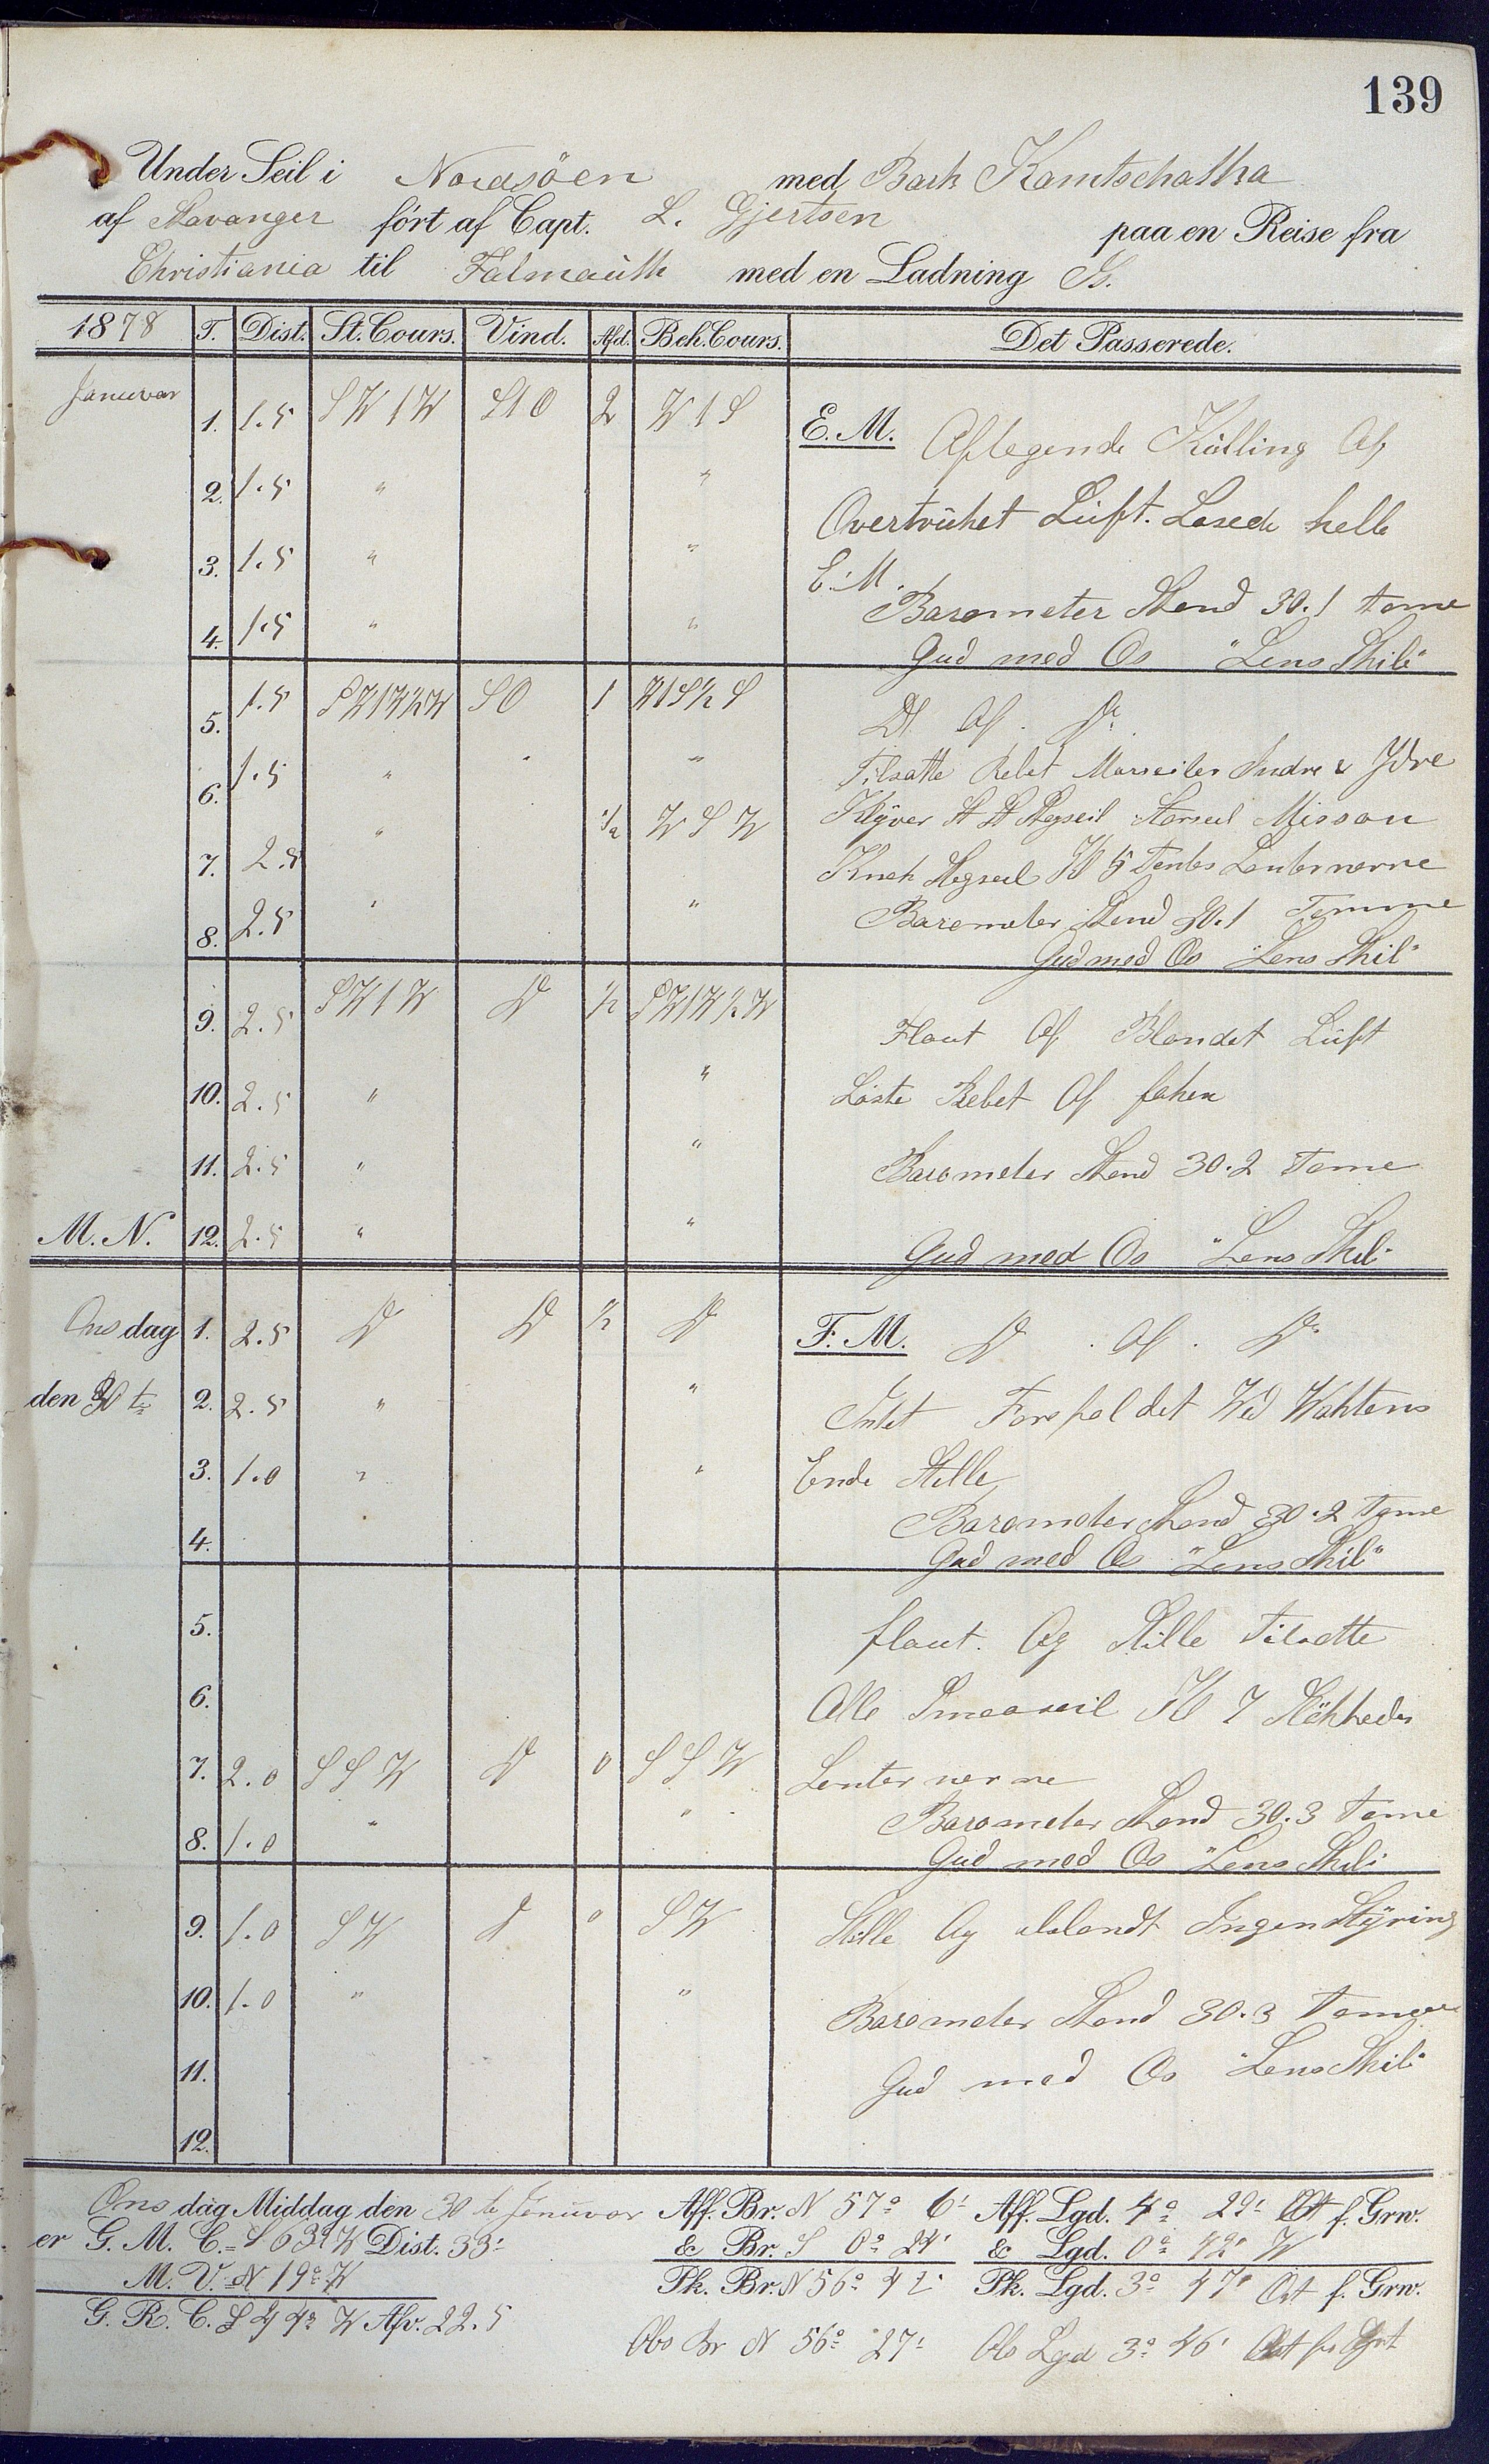 139
Under Seil i Nordsöen med Bark Kamtschatka
af Stavanger fört af Capt. L. Gjertsen paa en Reise fra
Christiania til Falmauth med en Ladning Is.
1878 T. Dist. St. Cours. Vind. Afd. Beh. Cours. Det Passerede.
Januvar
1. 1.5 SW 1 W S1O 2 W 1 S E. M. Aflegende Kulling Og
2. 1.5 " " Overtruket Luft. Losede helle
3. 1.5 " " E. M.
Barometer Stand 30.1 tome
4. 1.5 " "
Gud med Os "Lens Skib"
5. 1.5 SW1W½W SO 1 W1S½S Dt. Og. Do.
6. 1.5 " " " Tilsatte Rebet Marseiler Indre & Ydre
Klÿver St St Stagseil Storseil Missan
7. 2.5 " ½ W S W
Stagseil Kl 5 Lanternerne
8. 2.5 " "
Barometer Stand 30.1 Tomme
Gud med Os "Lens Skib"
9. 2.5 SW 1 W D ½ SW1W½W
Flaut Og Blandet Luft
10. 2.5 " " Löste Rebet Af foken
11. 2.5 " " Barometer Stand 30.2 tome
M. N. 12. 2.5 " "
Gud med Os "Lens Skib"
Onsdag 1. 2.5 D D ½ D F. M. D. Og. Do
den 30 te 2. 2.5 " " Intet Forefaldet Wed Waktens
3. 1.0 " " Ende Stille
Barometer Stand 30.2 tome
4.
Gud med Os "Lens Skib"
5. flaut. Og Stille tilsatte
6. Alle Smaaseil Kl 7
7. 2.0 S S W D 0 S S W Lanternerne
Barometer Stand 30.3 tome
8. 1.0 " "
Gud med Os "Lens Skib"
9. 1.0 SW D 0 SW Stille Og Ingen Stÿring
10. 1.0 " "
Barometer Stand 30.3 tomme
11.
Gud med Os "Lens Skib"
12.
Onsdag Middag den 30 te Januvar Aff. Br. N 57° 6' Aff. Lgd. 4° 29' Ost f. Grw.
er G. M. C. = S 63° W Dist. 33' & Br. S 0° 24' & Lgd. 0° 42' W
M. V. N 19° W Pk. Br. N 56° 42' Pk. Lgd. 3° 47' Ost f. Grw.
G. R. C. S 44° W Afv. 22.5
Obs Br N 56° 27' Obs Lgd 3° 46' Ost